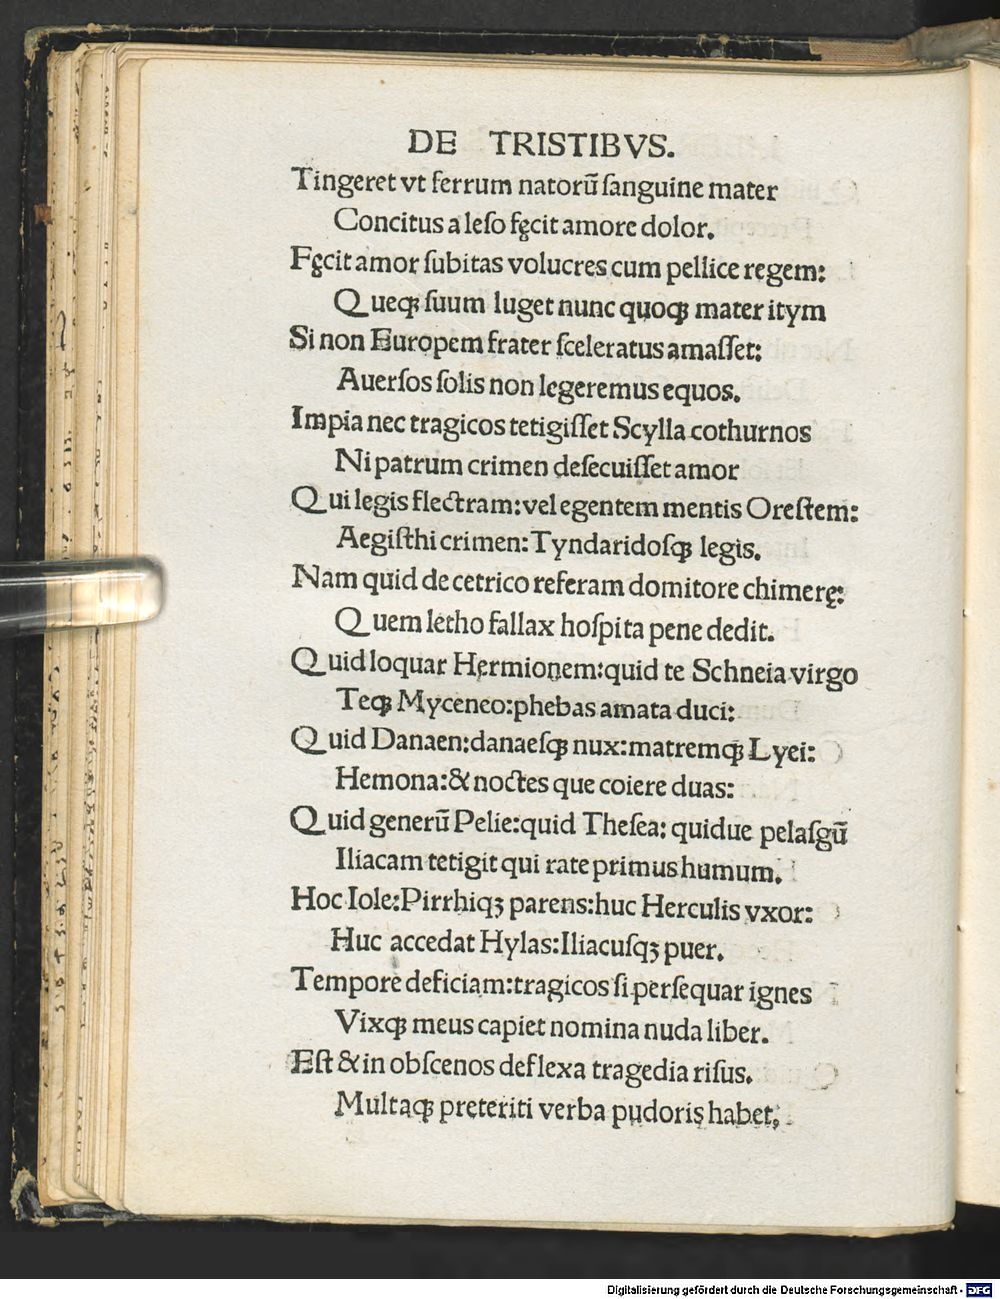 DE TRISTIBVS.
Tingeret vt ferrum natorū ſanguine mater
Concitus a leſo fęcit amore dolor.
Fęcit amor ſubitas volucres cum pellice regem:
Queqꝫ ſuum luget nunc quoqꝫ mater itym
Si non Europem frater ſceleratus amaſſet:
Auerſos ſolis non legeremus equos.
Impia nec tragicos tetigiſſet Scylla cothurnos
Ni patrum crimen deſecuiſſet amor
Qui legis flectram: vel egentem mentis Oreſtem:
Aegiſthi crimen: Tyndaridoſqꝫ legis.
Nam quid de cetrico referam domitore chimerę:
Quem letho fallax hoſpita pene dedit.
Quid loquar Hermionem: quid te Schneia virgo
Teqꝫ Myceneo: phebas amata duci:
Quid Danaen: danaeſqꝫ nux: matremqꝫ Lyei:
Hemona: & noctes que coiere duas:
Quid generū Pelie: quid Theſea: quidue pelaſgū
Iliacam tetigit qui rate primus humum.
Hoc Iole: Pirrhiqꝫ parens: huc Herculis vxor:
Huc accedat Hylas: Iliacuſqꝫ puer.
Tempore deficiam: tragicos ſi perſequar ignes
Vixqꝫ meus capiet nomina nuda liber.
Eſt & in obſcenos deflexa tragedia riſus.
Multaqꝫ preteriti verba pudoris habet,
Digitalisierung gefördert durch die Deutsche Forschungsgemeinschaft - DFG